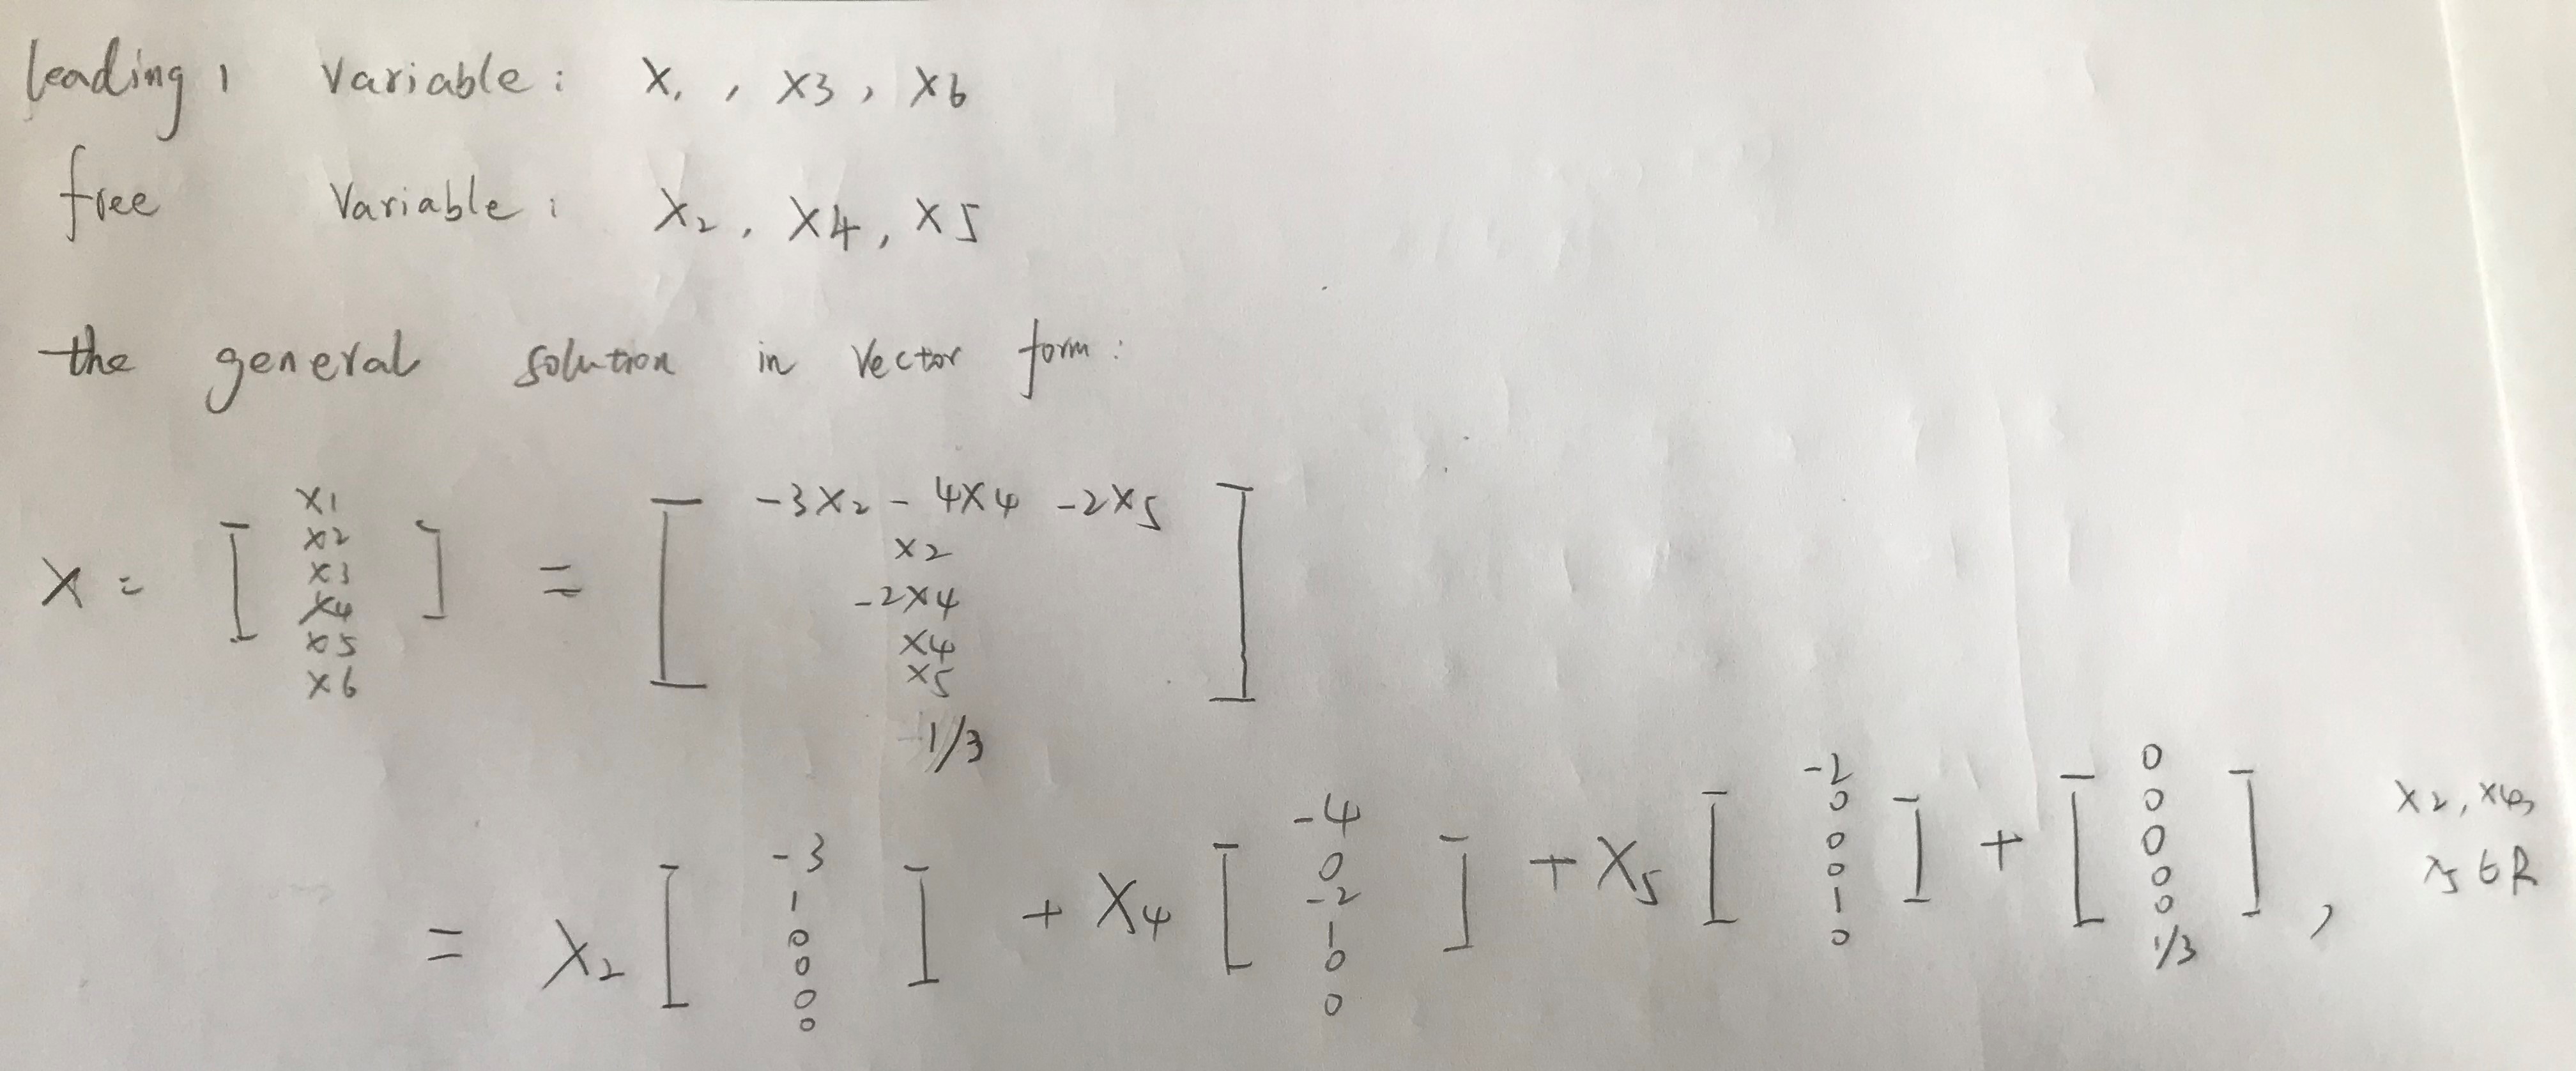 leading 1 variable: x1, x3, x6
free variable: x2, x4, x5
the general solution in vector form:
x = [ x1 x2 x3 x4 x5 x6 ] = [ -3x2 - 4x4 -2x5 x2 -2x4 x4 x5 1/3 ]
= x2 [ -3 1 0 0 0 0 ] + x4 [ -4 0 -2 1 0 0 ] + x5 [ -2 0 0 0 1 0 ] + [ 0 0 0 0 0 1/3 ], x2, x4, x5 ∈ R